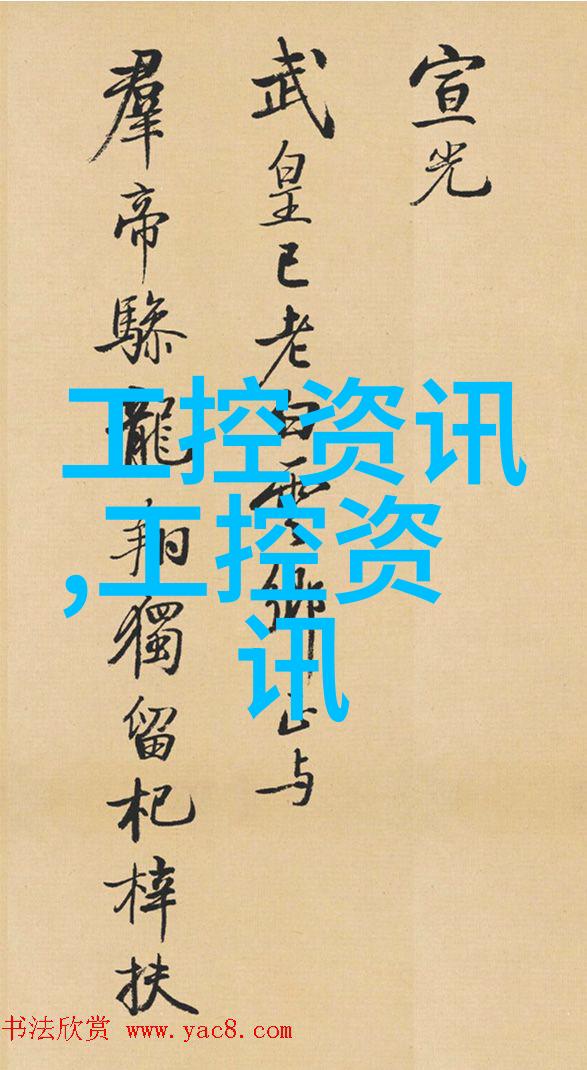 宣光
武皇已老白雲鄉正与
羣帝驂龍翔獨留杞梓扶
工控资讯
,工控资
讯
书法欣赏 www.yac8.com